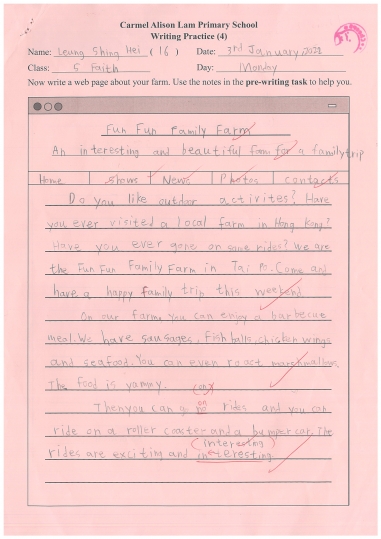 Carmel Alison Lam Primary School
Writing Practice (4)
Name: Leung Shing Hei ( 16 ) Date: 3rd January, 2022
Class: 5 Faith Day: Monday
Now write a web page about your farm. Use the notes in the pre-writing task to help you.
Fun Fun Family Farm
An interesting and beautiful farm for a family trip
Home shows News Photos contacts
Do you like outdoor activites? Have
you ever visited a local farm in Hong Kong?
Have you ever gone on some rides? We are
the Fun Fun Family Farm in Tai Po. Come and
have a happy family trip this weekend.
On our farm, you can enjoy a barbecue
meal. We have sausages, fish balls, chicken wings
and seafood. You can even roast marshmallows.
The food is yummy.
(on)
on
Then you can go rides and you can
ride on a roller coaster and a bumper car. The
(interesting)
rides are exciting and interesting.